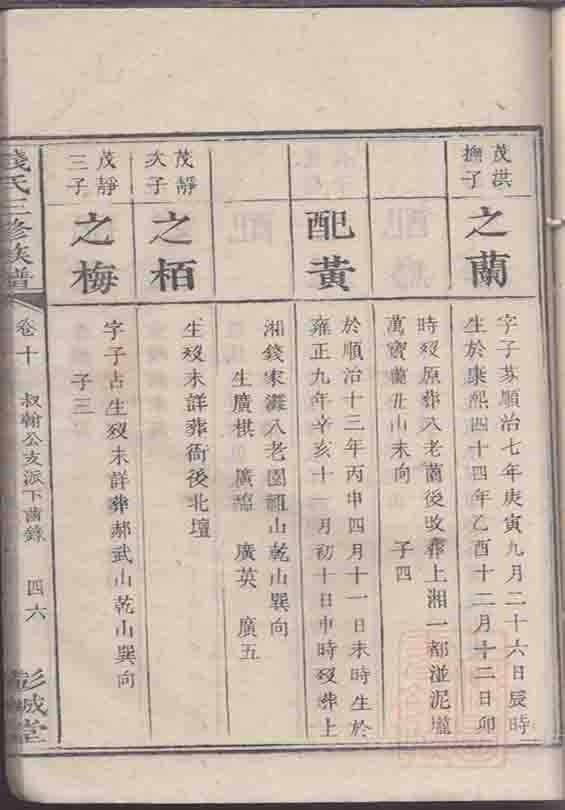 茂洪
撫子
之蘭
字子芬順治七年庚寅九月二十六日辰時
生於康熙四十四年乙酉十二月十二日卯
時歿原葬八老園後改葬上湘一都湴泥壠
萬寶蘭丑山未向 子四
配黃
於順治十三年丙申四月十一日未時生於
雍正九年辛亥十一月初十日申時歿葬上
湘錢家灘八老園祖山乾山巽向
生廣棋 廣 廣英 廣五
茂靜
次子
之栢
生歿未詳葬衙後北壇
茂靜
三子
之梅
字子占生歿未詳葬郝武山乾山巽向
子三
錢氏三修族譜
卷十
叔翰公支派下齒錄
四六
彭城堂